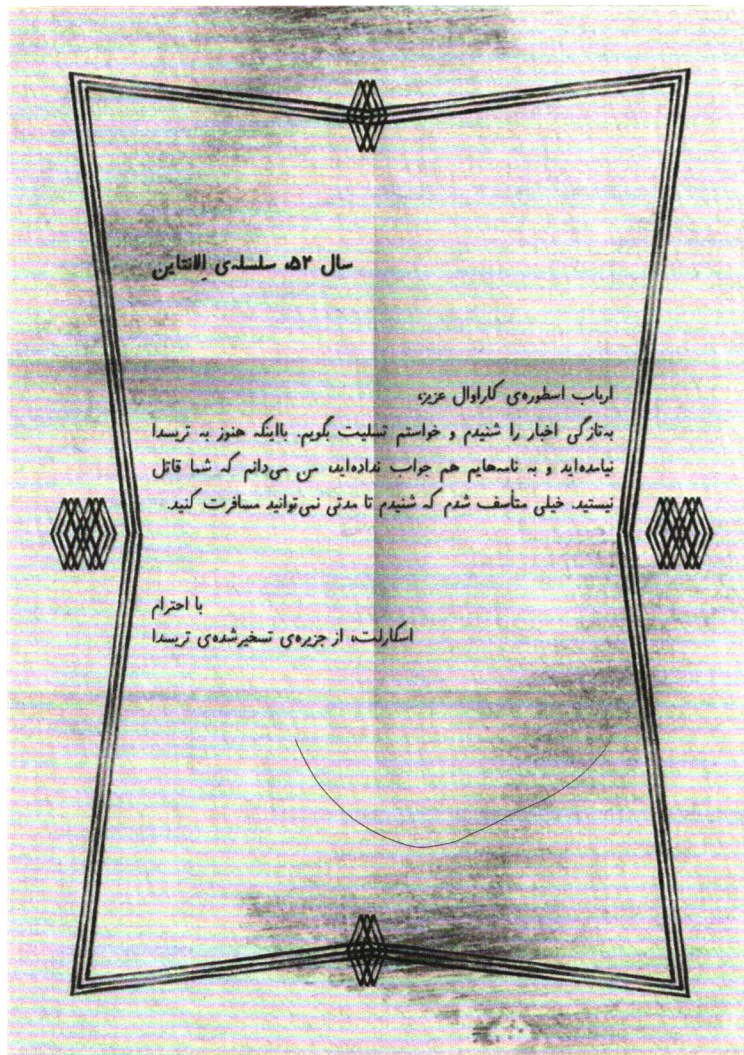 سال ۵۲، سلسله‌ی اِلانتاین
ارباب اسطوره‌ی کاراوال عزیز،
به‌تازگی اخبار را شنیدم و خواستم تسلیت بگویم. بااینکه هنوز به تریسدا
نیامده‌اید و به نامه‌هایم هم جواب نداده‌اید، من می‌دانم که شما قاتل
نیستید. خیلی متأسف شدم که شنیدم تا مدتی نمی‌توانید مسافرت کنید.
با احترام
اسکارلت، از جزیره‌ی تسخیرشده‌ی تریسدا